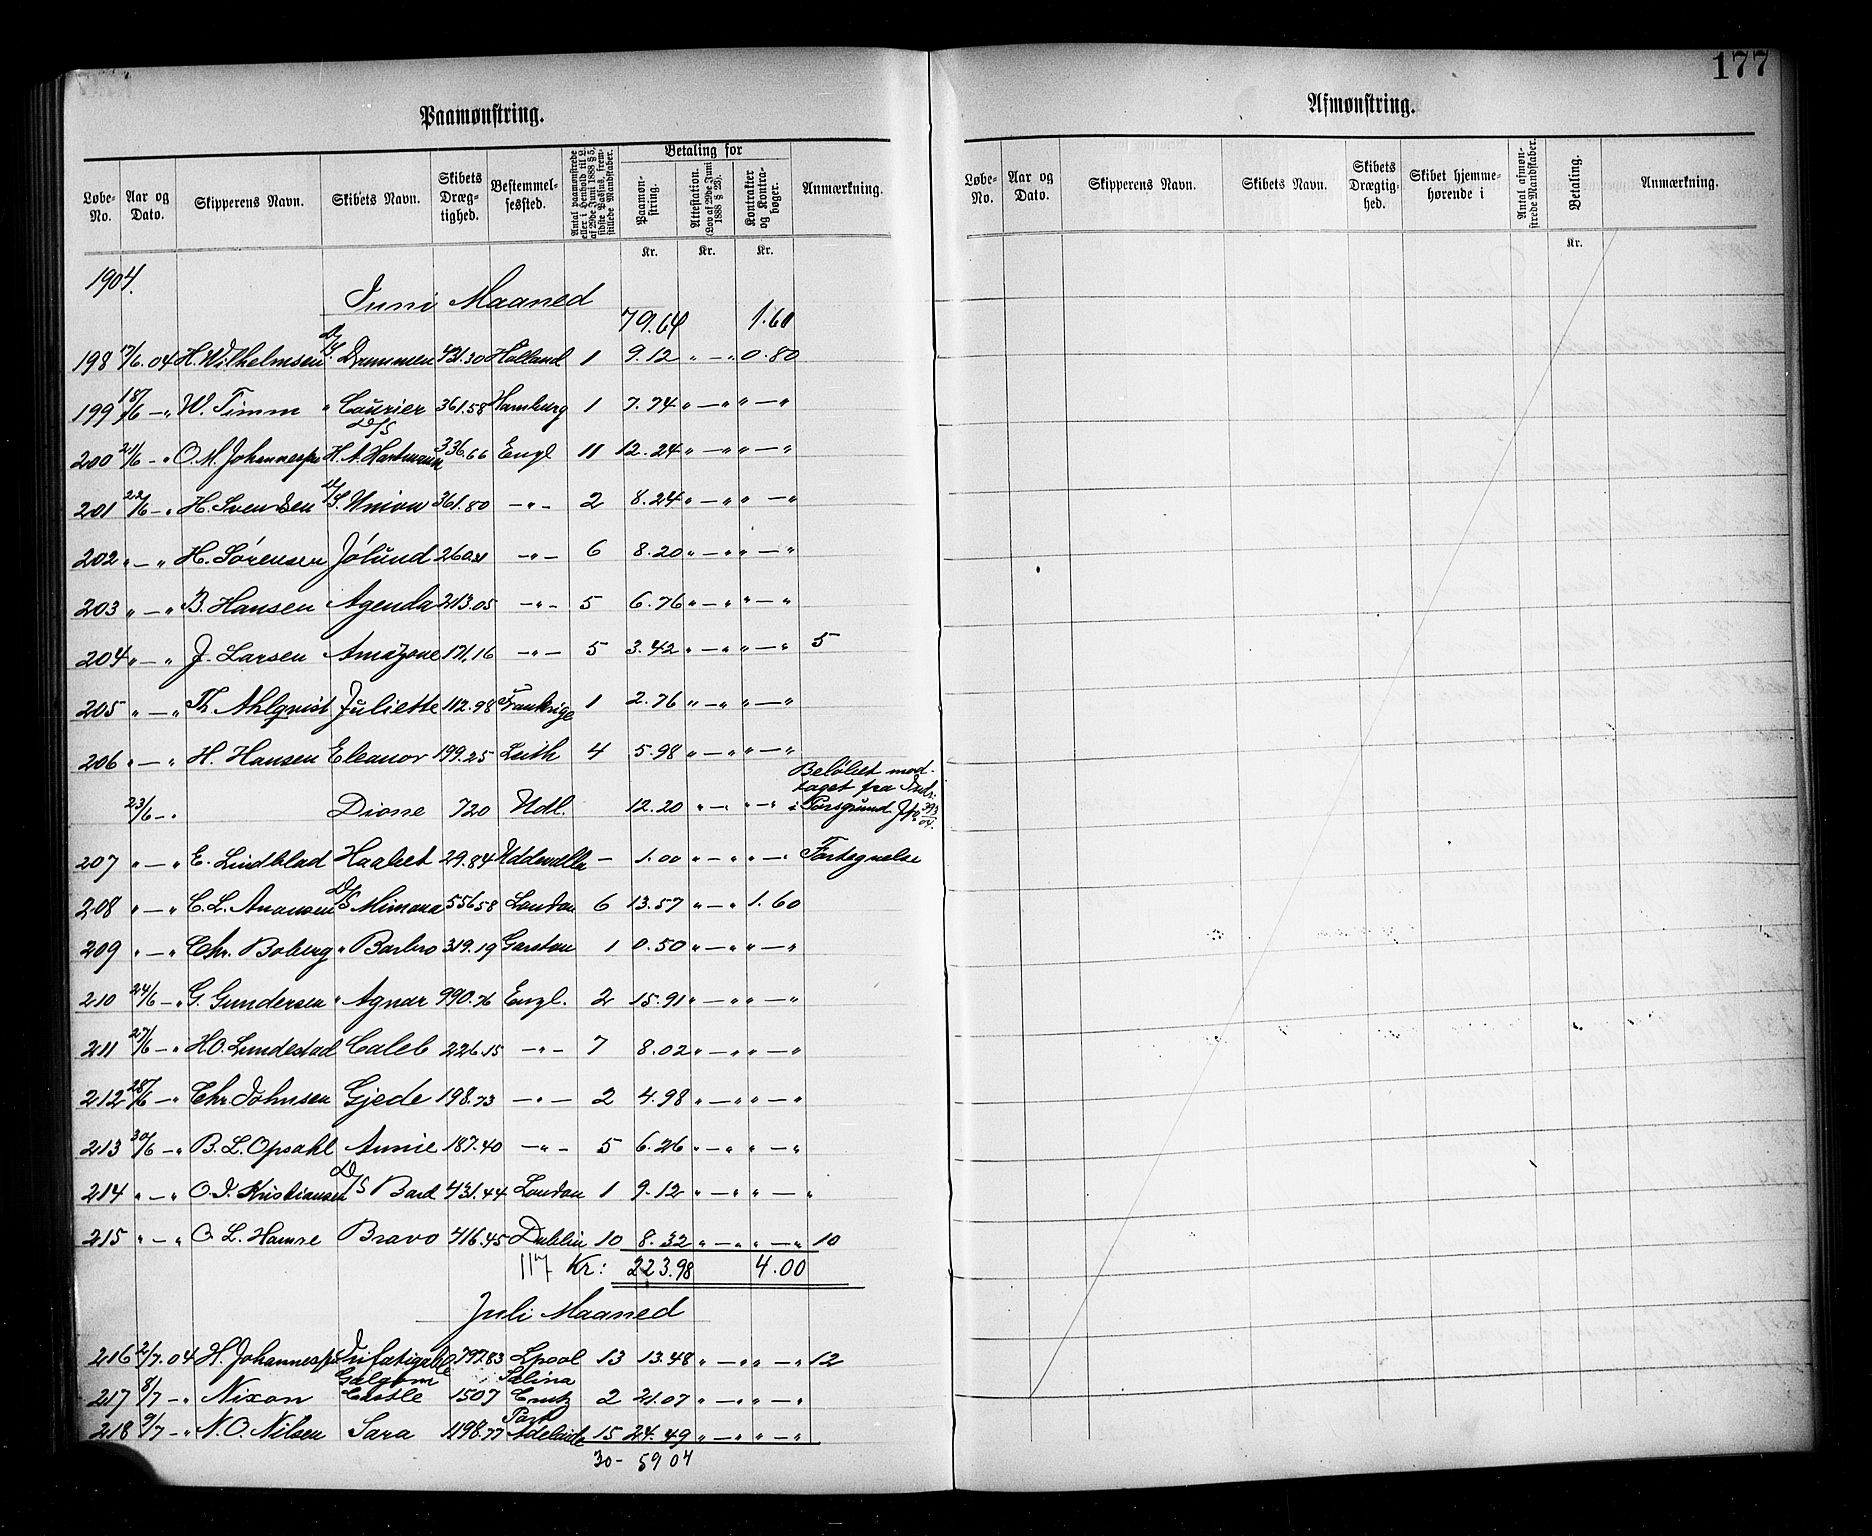 177
Paamønstring.
Løbe-No. Aar og Dato. Skipperens Navn. Skibets Navn. Skibets Dræg-tighed. Bestemmel-sessted. Antal paamønstrede eller i Henhold til L. af 29de Juni 1888 § 5, sidste Passus, frem-stillede Mandskaber. Betaling for Paamøn-string. Attestation. (Lov af 29de Juni 1888 § 25). Kontrakter og Kontra-bøger. Anmærkning.
Kr. Kr. Kr.
1904.
Juni Maaned
79.64 1.60
198 17/6.04 H. Wilhelmsen D/S. Drammen 431.30 Holland 1 9.12 " — " 0.80
199 18/6 — " W. Timm " Courier 361.58 Hamburg 1 7.74 " — " " — "
200 21/6 — " O. M. Johannessen D/S H. A. Hartmann 336.66 Engl 11 12.24 " — " " — "
201 22/6 — " H. Svendsen D/S. Union 361.80 — " — 2 8.24 " — " " — "
202 " — " H. Sörensen Jölund 260.31 — " — 6 8.20 " — " " — "
203 " — " B. Hansen Agenda 213.05 — " — 5 6.76 " — " " — "
204 " — " J. Larsen Amazone 171.16 — " — 5 3.42 " — " " — " 5
205 " — " Th. Ahlqvist Juliette 112.98 Frankrige 1 2.76 " — " " — "
206 " — " H. Hansen Eleanor 199.25 Leith 4 5.98 " — " " — "
23/6 — " Dione 720 Udl. 12.20 " — " " — " Belöbet mod-
taget fra
i Porsgrund
207 " — " E. Lindblad Haabet 29.84 Uddevalla — 1.00 " — " " — " Fortegnelse
208 " — " C. L. Aronsen D/S Mimona 556.58 London 6 13.57 " — " 1.60
209 " — " Chr. Boberg " Barbro 319.19 Garston 1 0.50 " — " " — "
210 24/6 — " G. Gundersen " Agnar 990.76 Engl. 2 15.91 " — " " — "
211 27/6 — " H.O. Lundestad Caleb 226.15 — " — 7 8.02 " — " " — "
212 28/6 — " Chr. Johnsen Gjede 198.73 — " — 2 4.98 " — " " — "
213 30/6 — " B. L. Opsahl Annie 187.40 — " — 5 6.26 " — " " — "
214 " — " O. J. Kristiansen D/S Bard 431.44 London 1 9.12 " — " " — "
215 " — " O. L. Hamre Bravo 416.45 Dublin 10 8.32 " — " " — " 10
117 Kr: 223.98 4.00
Juli Maaned
216 2/7.04 H. Johannessen Indfatigable 797.83 Lpool 13 13.48 " — " " — " 12
217 8/7 — " Nixon Galgorm Castle 1507 Salina Cruz 2 21.07 " — " " — "
218 9/7 — " N. O. Nilsen Sara 1198.77 Port Adelaide 15 24.49 " — " " — "
30 - 59 04
Afmønstring.
Løbe-No. Aar og Dato. Skipperens Navn. Skibets Navn. Skibets Drægtig-hed. Skibet hjemme-hørende i Antal afmøn-strede Mandskaber. Betaling. Anmærkning.
Kr.